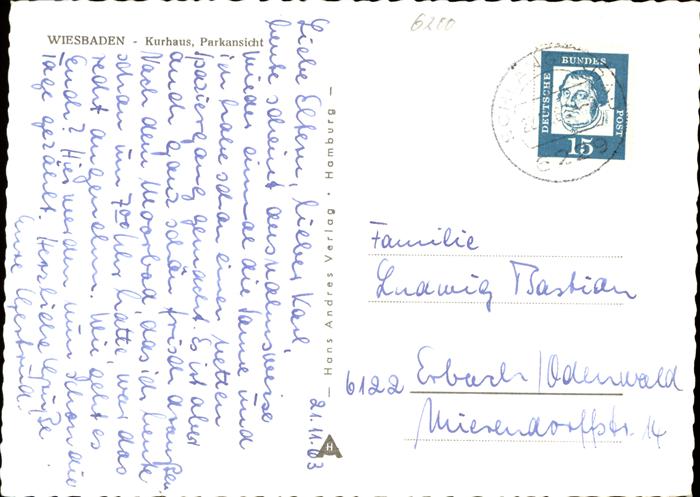 6200
WIESBADEN - Kurhaus, Parkansicht
Liebe Eltern, lieber Karl,
heute scheint ausnahmsweise
wieder einmal die Sonne und
ich habe schon einen netten
Spaziergang gemacht. Es ist aber
auch ganz schön frisch draußen.
Nach dem Moorbad, das ich heute
schon um 7.00 Uhr hatte, war das
recht angenehm. Wie geht es
Euch? Hier werden nun schon die
Tage gezählt. Herzliche Grüße
Eure
21.11.63
— Hans Andres Verlag · Hamburg —
HA
DEUTSCHE BUNDES POST
15
6229
Familie
Ludwig Bastian
6122 Erbach/Odenwald
Mierendorffstr. 14